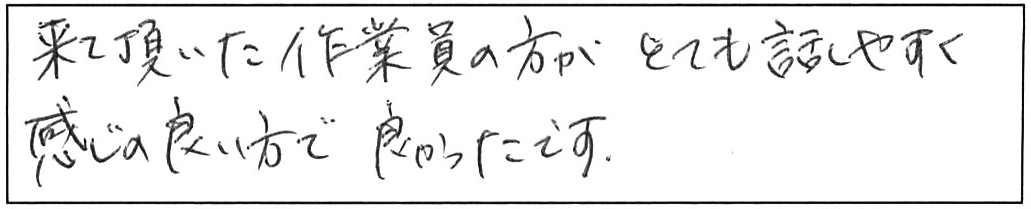 来て頂いた作業員の方が とても話しやすく
感じの良い方で 良かったです.